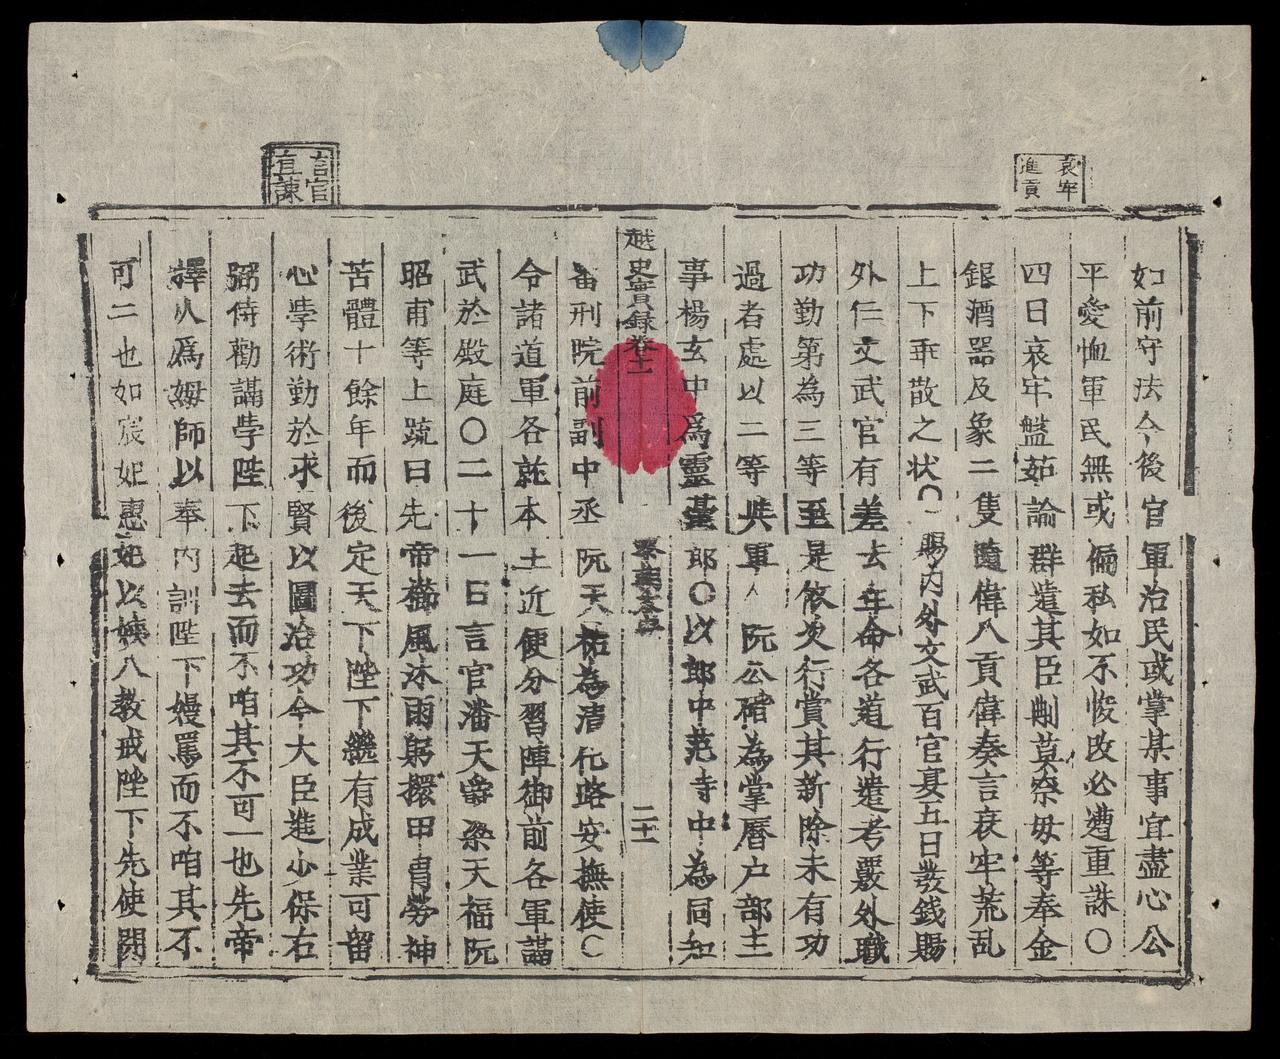 哀牢
進貢
如前守法令今後官軍治民或掌某事宜盡心公
平愛恤軍民無或偏私如不悛改必遭重誅〇
四日哀牢盤茹論群遣其臣剛莫祭毋等奉金
銀酒器及象二隻隨偉入貢偉奏言哀牢荒乱
上下乖散之状〇賜内外文武百官夏五日發錢賜
外仁文武官有差去年命各道行遣考覈外職
功勤第為三等至是依次行賞其新除未有功
過者處以二等共軍人阮公碏為掌曆户部主
事楊玄中爲靈臺郎〇以郎中范寺中為同知
越史實録卷十一
黎朝太宗
二十一
審刑院前副中丞阮天祐為清化路安撫使〇
令諸道軍各就本土近便分習陣御前各軍講
武於殿庭〇二十一日言官潘天爵梁天福阮
昭甫等上疏曰先帝櫛風沐雨躬擐甲冑勞神
苦體十餘年而後定天下陛下繼有成業可留
心學術勤於求賢以圖治功今大臣進少保右
弼侍勸講學陛下起去而不咱其不可一也先帝
擇人爲姆師以奉内訓陛下嫚罵而不咱其不
可二也如宸妃惠妃以姨八教戒陛下先使閉
言官
直諫